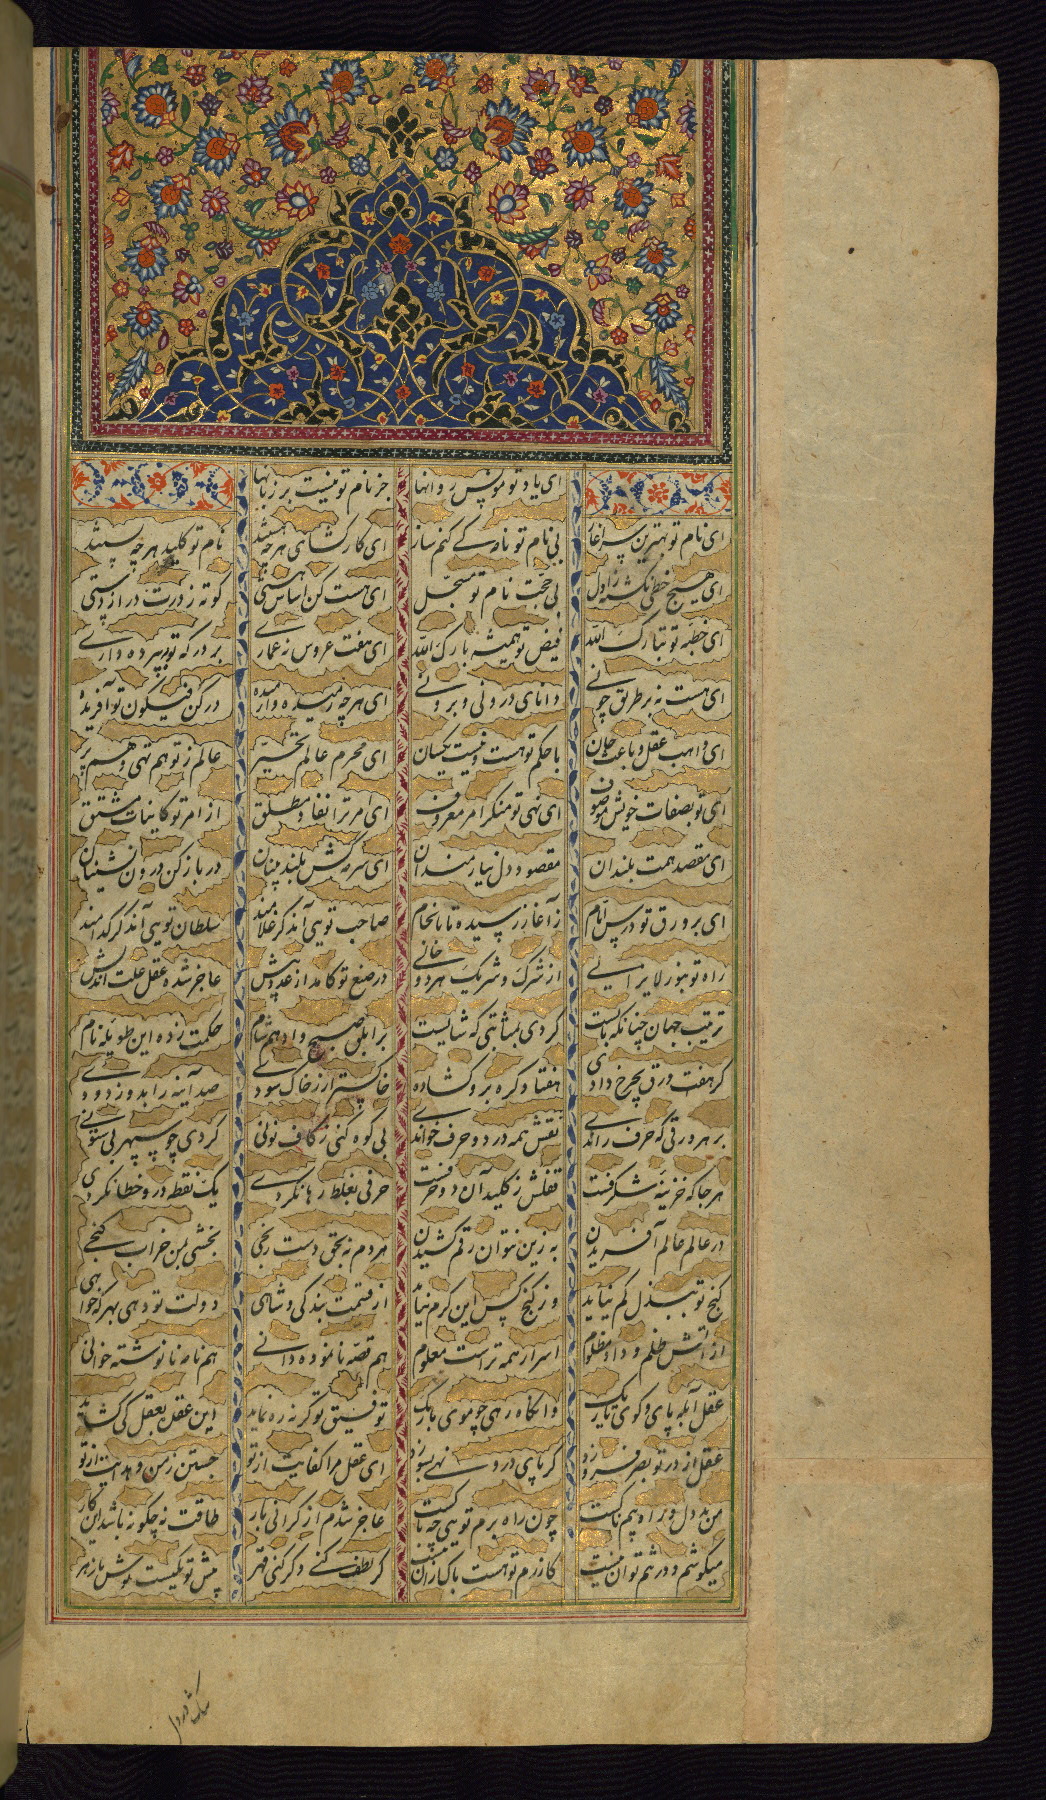 ای یاد تو مونس روانها جز نام تو نیست بر زبانها
ای نام تو بهترین سرآغاز بی نام تو نامه کی کنم ساز ای کارگشای هرچه هستند نام تو کلید هرچه بستند
ای هیچ خطی نگشته ز اول بی حجت نام تو مسجل ای هست کن اساس هستی کوته ز درت دراز دستی
ای خطبه تو تبارک الله فیض تو همیشه بارک الله ای هفت عروس نه عماری بر درگه تو بپرده داری
ای هست نه بر طریق چونی دانای درونی و برونی ای هرچه رمیده وارمیده در کن فیکون تو آفریده
ای واهب عقل و باعث جان با حکم تو هست و نیست یکسان ای محرم عالم تحیر عالم ز تو هم تهی و هم پر
ای تو بصفات خویش موصوف ای نهی تو منکر امر معروف ای امر ترا نفاذ مطلق از امر تو کاینات مشتق
ای مقصد همت بلندان مقصود دل نیازمندان ای سرمه کش بلند بینان در باز کن درون نشینان
ای بر ورق تو درس ایام ز آغاز رسیده تا بانجام صاحب تویی آن دگر غلامند سلطان تویی آن دگر کدامند
راه تو بنور لایزالی از شرک و شریک هر دو خالی در صنع تو کامد از عدد بیش عاجز شده عقل علت اندیش
ترتیب جهان چنانکه بایست کردی بمثابتی که شایست بر ابلق صبح و ادهم شام حکمت زده این طویله نام
گر هفت ورق بچرخ دادی هفتاد گره برو گشاده خاکستر ار ز خاک سودی صد آینه را بدو زدودی
بر هر ورقی که حرف راندی نقش همه در دو حرف خواندی بی کوه کنی ز کاف نونی کردی چو سپهر بی ستونی
هرجا که خزینه شگرفست قفلش ز کلید آن دو حرفست حرفی بغلط رها نکردی یک نقطه درو خطا نکردی
در عالم عالم آفریدن به زین نتوان رقم کشیدن هر دم نه بحق دست رنجی بخشی بمن خراب گنجی
گنج تو ببذل کم نیاید وز گنج کس این کرم نیاید از قسمت بندگی و شاهی دولت تو دهی بهر که خواهی
از آتش ظلم و دود مظلوم اسرار همه تراست معلوم هم قصه نانموده دانی هم نامه نانوشته خوانی
عقل آبله پای و کوی تاریک وانگاه رهی چو موی باریک توفیق تو گر نه ره نماید این عقده بعقل کی گشاید
عقل از در تو بصر فروزد گر پای درو نهی بسوزد ای عقل مرا کفایت از تو جستن ز من و هدایت از تو
من بددل و راه بیمناکست چون راه برم تویی چه باکست عاجز شدم از گرانی بار طاقت نه چگونه باشد این کار
میکوشم و در تنم توان نیست کازرم تو هست باک از آن نیست گر لطف کنی و گر کنی قهر پیش تو یکیست نوش یا زهر